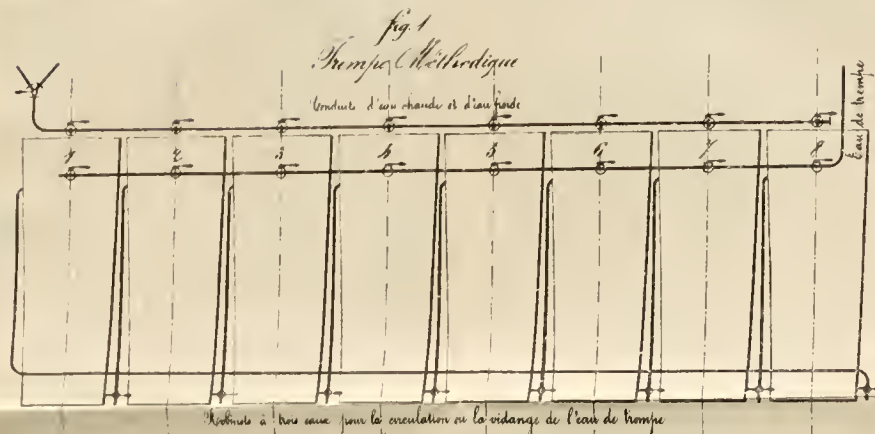 fig. 1
Trempe Méthodique
Conduits d'eau chaude et d'eau froide
Eau de trempe
1 2 3 4 5 6 7 8
Robinets à trois eaux pour la circulation ou la vidange de l'eau de trempe